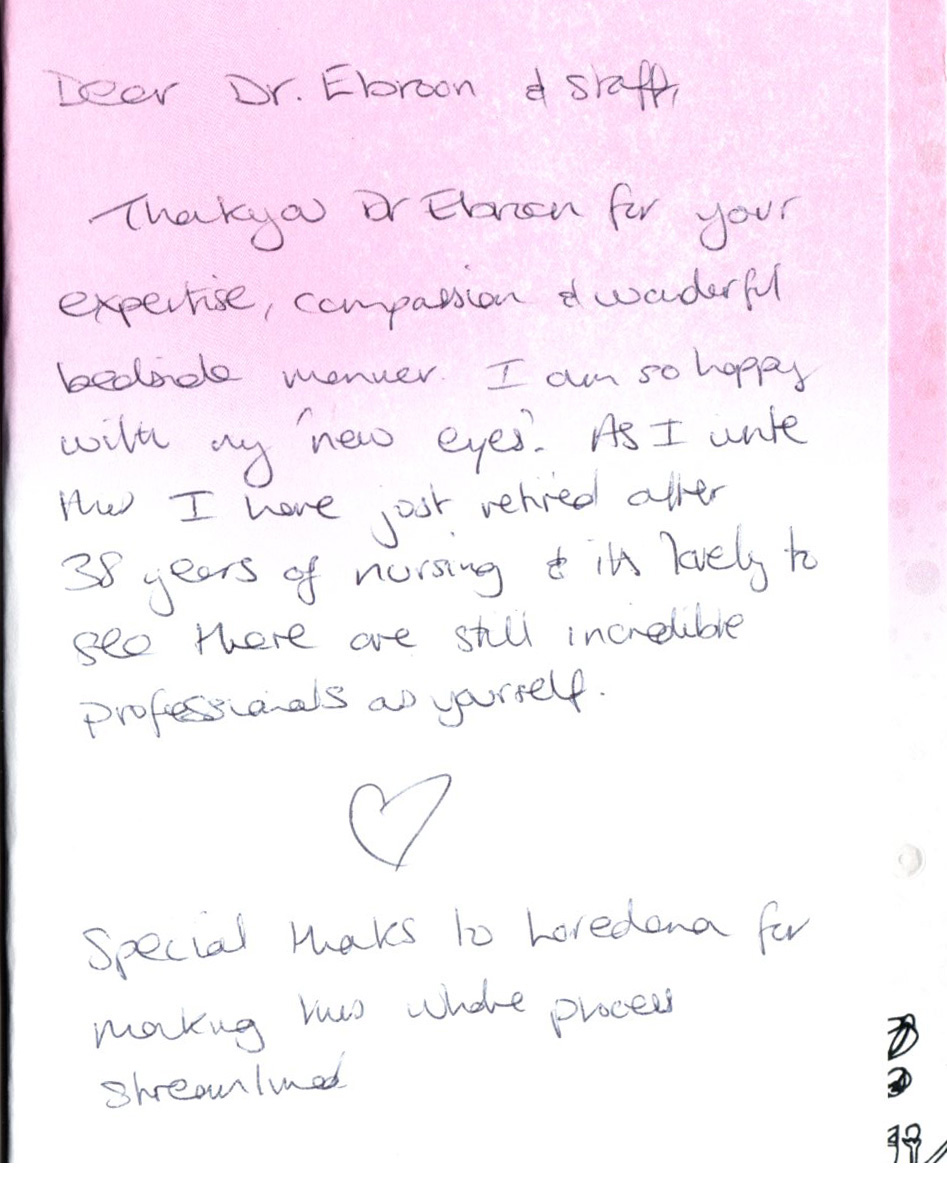 Dear Dr. Ebroon & staff,
Thankyou Dr Ebroon for your
expertise, compassion & wonderful
bedside manner. I am so happy
with my 'new eyes'. As I write
this I have just retired after
38 years of nursing & its lovely to
see there are still incredible
professionals as yourself.
Special thanks to Loredana for
making this whole process
streamlined